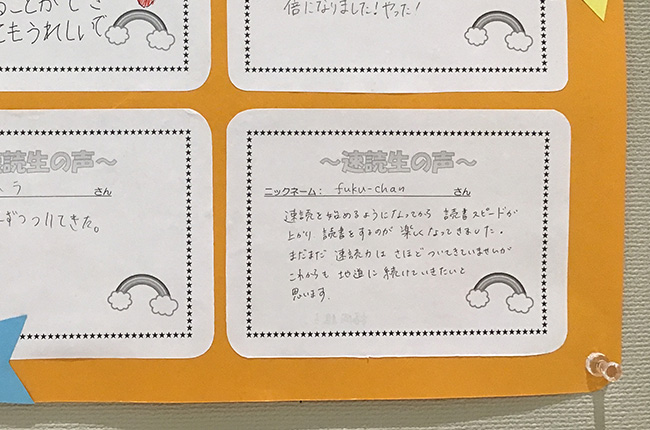 ることができ
てもうれしいで
倍になりました!やった!
速読生の声〜
ラ さん
ずつついてきた。
〜速読生の声〜
ニックネーム: fuku-chan さん
速読を始めるようになってから 読書スピードが
上がり 読書をするのが 楽しくなってきました。
まだまだ 速読力は さほど ついてきていませんが
これからも 地道に 続けていきたいと
思います。